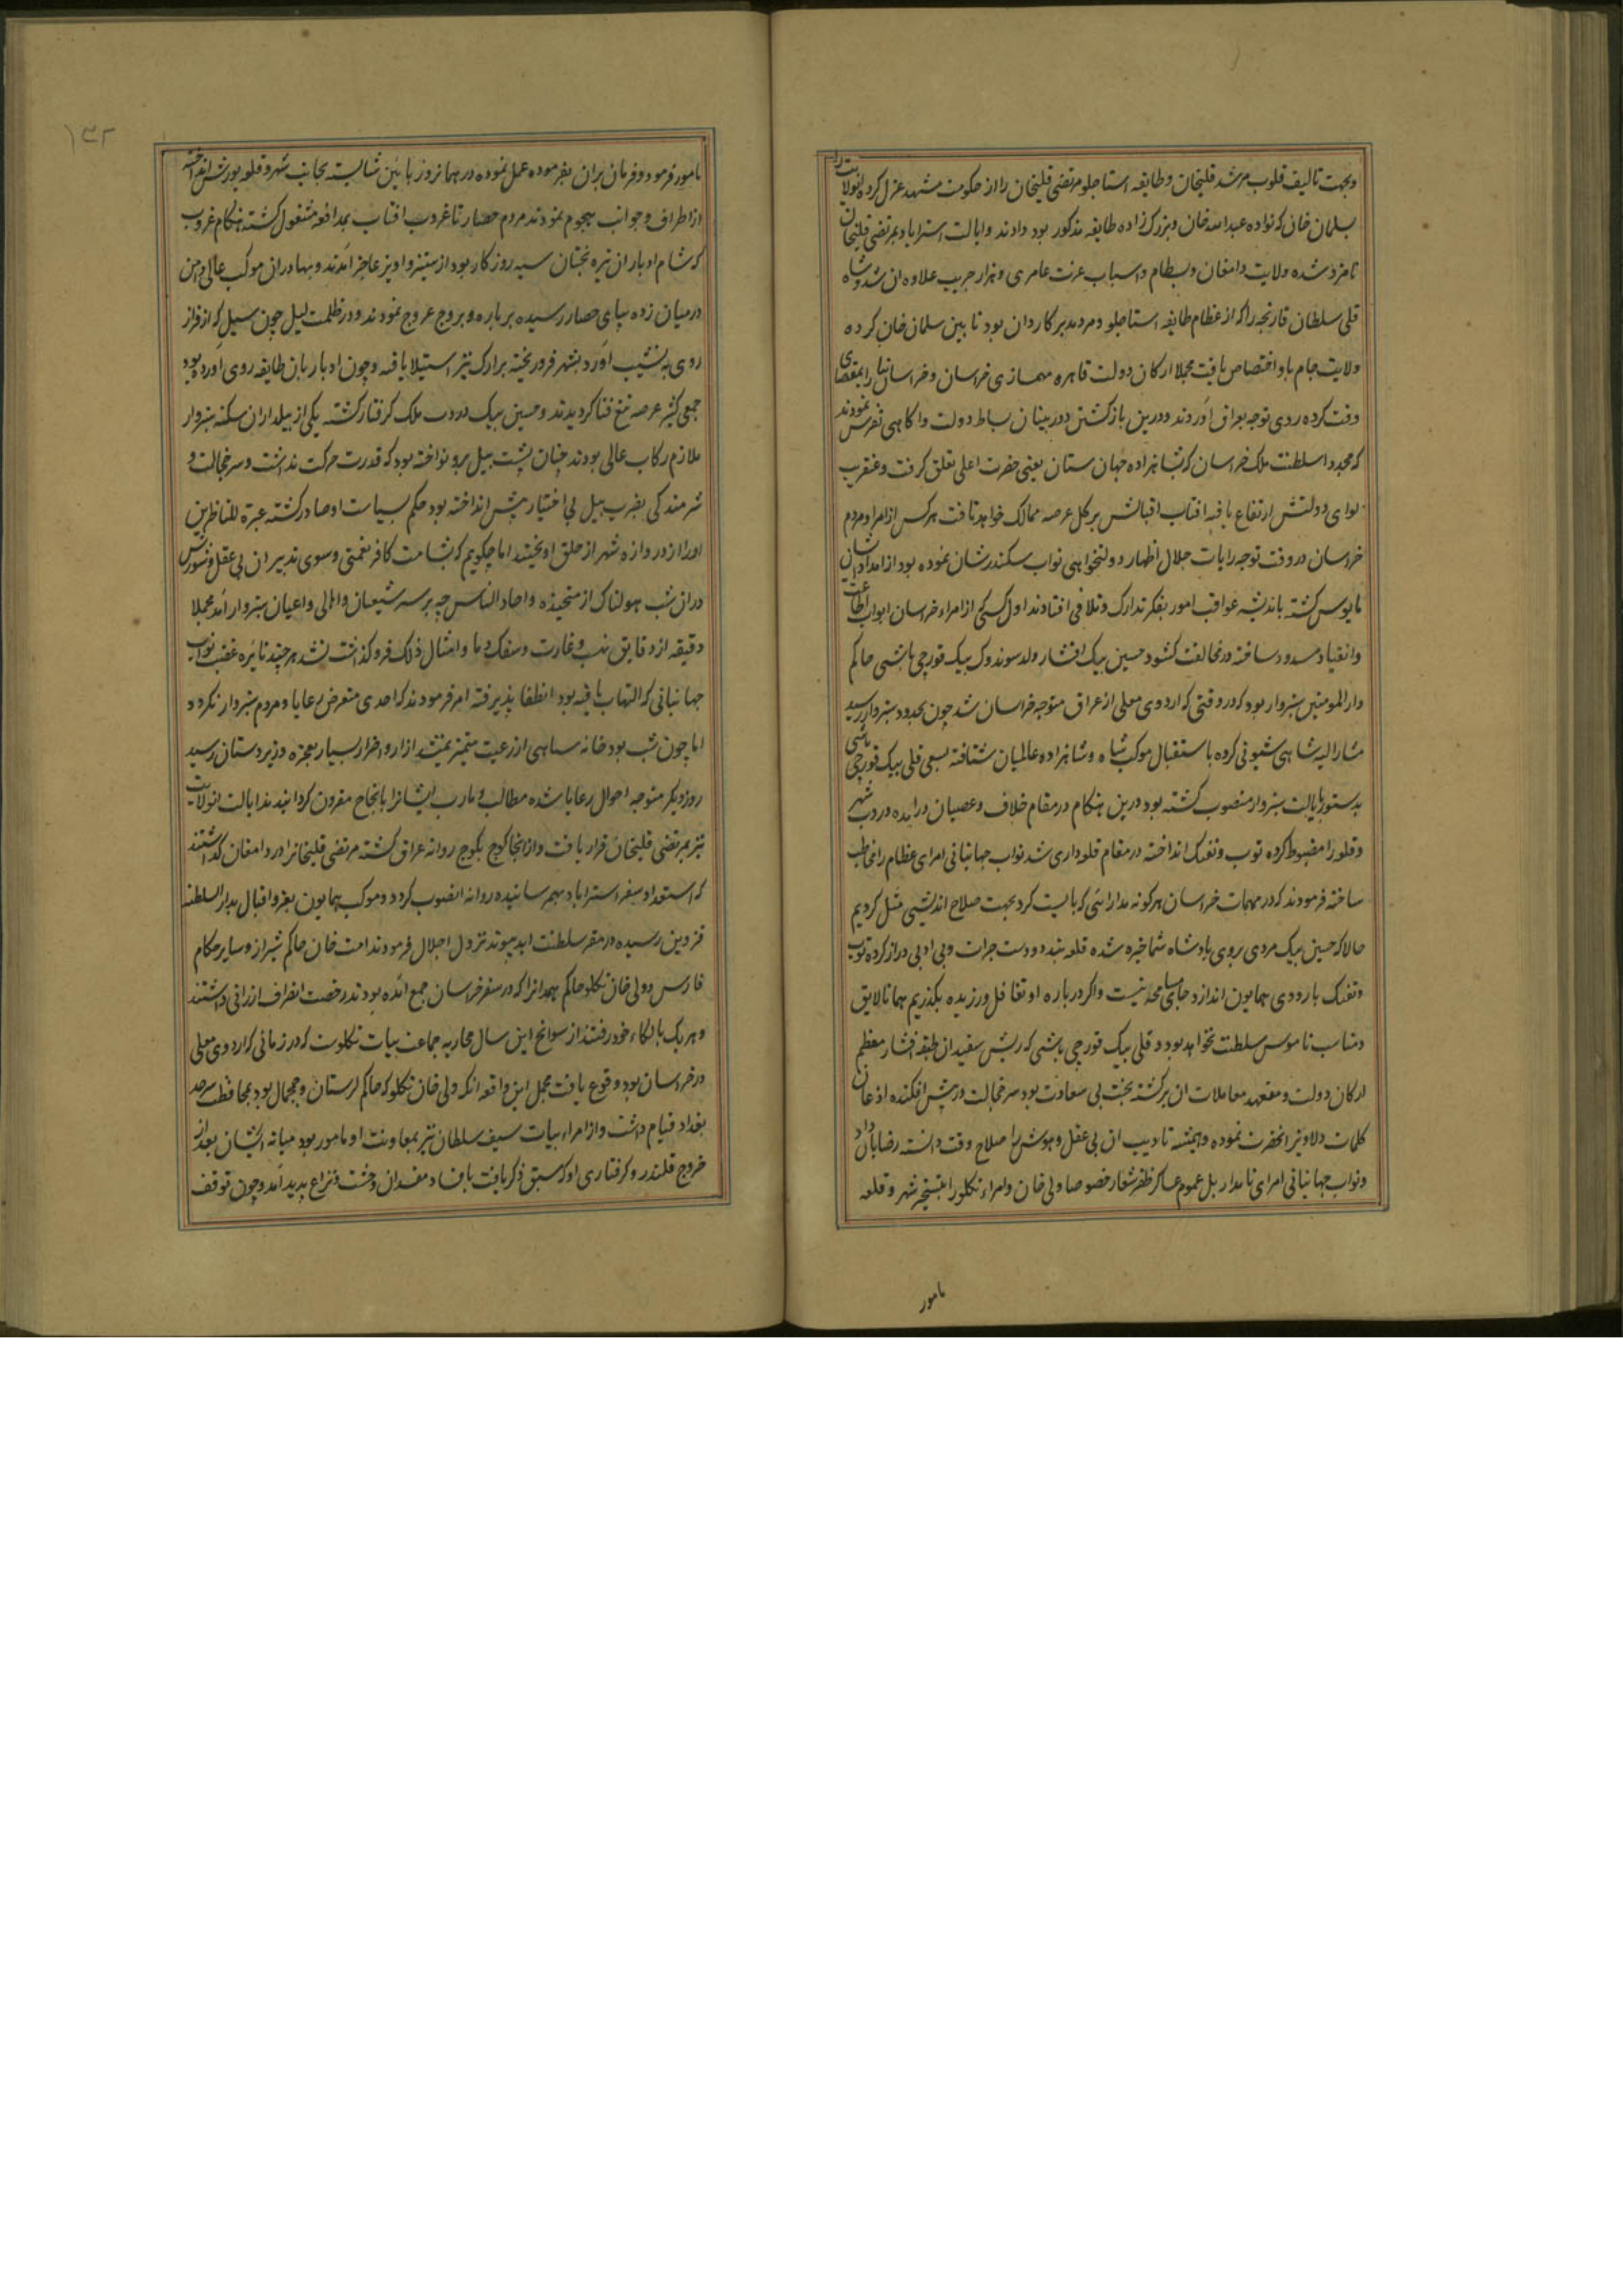 وبجهت تالیف قلوب مرشد قلیخان وطایفه استاجلو مرتضی قلیخان را از حکومت مشهد عزل کرده انولایت را
بسلمان خان که نواده عبدالله خان وبزرک زاده طایفه مذکور بود دادند وایالت استراباد بمرتضی قلیخان
نامزد شده ولایت دامغان وبسطام واسباب عرب عامری وهزار جریب علاوه ان شد وشاه
قلی سلطان قارنجه را که از عظام طایفه استاجلو ومرد مدبر کاردان بود تابین سلمان خان کرده
ولایت جام باو اختصاص یافت مجملا ارکان دولت قاهره مهمسازی خراسان وخراسانیان را بمقتضای
وقت کرده روی توجه بعراق اوردند ودرین بازکشتن دوربینان بساط دولت واکاهی تفرس نمودند
که مجددا سلطنت ملک خراسان که بشاهزاده جهان ستان یعنی حضرت اعلی تعلق کرفت وعنقریب
لوای دولتش ارتفاع یافته افتاب اقبالش بر کل عرصه ممالک خواهد تافت هرکس از امرا ومردم
خراسان در وقت توجه رایات جلال اظهار دولتخواهی نواب سکندرشان نموده بود از امداد ایشان
مایوس کشته باندیشه عواقب امور بفکر تدارک وتلافی افتادند اول کسی از امراء خراسان ابواب اطاعت
وانقیاد مسدود ساخته در مخالفت کشود حسین بیک افشار ولد سوندوک بیک قورچی باشی حاکم
دار المومنین سبزوار بود که در وقتی که اردوی معلی از عراق متوجه خراسان شد چون بحدود سبزوار رسید
مشارالیه شاهی شیونی کرده باستقبال موکب شاه وشاهزاده عالمیان شتافته بسعی قلی بیک قورچی باشی
بدستور بایالت سبزوار منصوب کشته بود درین هنکام در مقام خلاف وعصیان درامده دروب شهر
وقلعه را مضبوط کرده توپ وتفنک انداخته در مقام قلعه داری شد نواب جهانبانی امرای عظام را مخاطب
ساخته فرمودند که در مهمات خراسان هر کونه مدارائی که بایست کرد بجهت صلاح اندیشی مثل کردیم
حالا که حسین بیک مردی بروی پادشاه شما خیره شده قلعه بندد ودست جرات وبی ادبی دراز کرده توپ
وتفنک باردوی همایون اندازد جای مسامحه نیست واکر درباره او تغافل ورزیده بکذریم همانا لایق
ومناسب ناموس سلطنت نخواهد بود وقلی بیک قورچی باشی که ریش سفید ان طبقه افشار معظم
ارکان دولت ومتعهد معاملات ان برکشته بخت بی سعادت بود سر خجالت در پیش افکنده اذعان
کلمات دلاویز انحضرت نموده وتنبیه وتادیب ان بی عقل وهوش را صلاح وقت دانسته رضا بان داد
ونواب جهانبانی امرای نامدار بل عموم عساکر ظفر شعار خصوصا ولی خان وامراء تکلو را بتسخیر شهر وقلعه
مامور
۱۳۲
مامور فرمود وفرمان بران بفرموده عمل نموده در همانروز بائین شایسته بجانب شهر وقلعه یورش انداخته
از اطراف وجوانب هجوم نمودند مردم حصار تا غروب افتاب بمدافعه مشغول کشته هنکام غروب
که شام ادبار ان تیره بختان سیه روزکار بود از ستیز واویز عاجز امدند وبهادران موکب عالی دامن
در میان زده بپای حصار رسیده بر باره وبروج عروج نمودند ودر ظلمت لیل چون سیل که از فراز
روی به نشیب اورد بشهر فرو ریخته بر ارک نیز استیلا یافته وچون ادبار بان طایفه روی اورده بود
جمعی کثیر عرصه تیغ فنا کردیدند وحسین بیک در درب ملک کرفتار کشته یکی از بیلداران سکنه سبزوار
ملازم رکاب عالی بودند چنان پشت بیل برو نواخته بود که قدرت حرکت نداشت وسر خجالت و
شرمندکی بضرب بیل بی اختیار پیش انداخته بود حکم سیاست او صادر کشته عبرة للناظرین
اورا از دروازه شهر از حلق اویختند اما چکویم که بشامت کافر نعمتی وسوی تدبیر ان بی عقل وشورش
در ان شب هولناک از متجنده واحاد الناس چه بر سر شیعیان واهالی واعیان سبزوار امد مجملا
دقیقه از دقایق نهب وغارت وسفک دما وامثال ذلک فروکذاشت نشد هر چند نائره غضب نواب
جهانبانی که التهاب یافته بود انطفا پذیرفته امر فرمودند که احدی متعرض رعایا ومردم سبزوار نکردد
اما چون شب بود خانه سپاهی از رعیت متمیز نمیشد ازار واضرار بسیار بعجزه وزیردستان رسید
روز دیکر متوجه احوال رعایا شده مطالب ومارب ایشانرا بانجاح مقرون کردانیدند ایالت انولایت
نیز بمرتضی قلیخان قرار یافت واز انجا کوچ بکوچ روانه عراق کشته مرتضی قلیخانرا در دامغان کذاشتند
که استعداد سفر استراباد بهم رسانیده روانه انصوب کردد وموکب همایون بعز واقبال بدار السلطنه
قزوین رسیده در مقر سلطنت ابد پیوند نزول اجلال فرمودند امت خان حاکم شیراز وسایر حکام
فارس وولی خان تکلو حاکم همدانرا که در سفر خراسان جمع امده بودند رخصت انصراف ارزانی داشتند
وهریک بالکاء خود رفتند از سوانح این سال محاربه جماعت بیات تکلوست که در زمانی که اردوی معلی
در خراسان بود وقوع یافت مجمل این واقعه انکه ولی خان تکلو که حاکم لرستان وچمچال بود بمحافظت سرحد
بغداد قیام داشت واز امراء بیات سیف سلطان نیز بمعاونت او مامور بود میانه ایشان بعد از
خروج قلندر وکرفتاری او که سبق ذکر یافت بافساد مفسدان وحشت ونزاع پدید امد وچون توقف